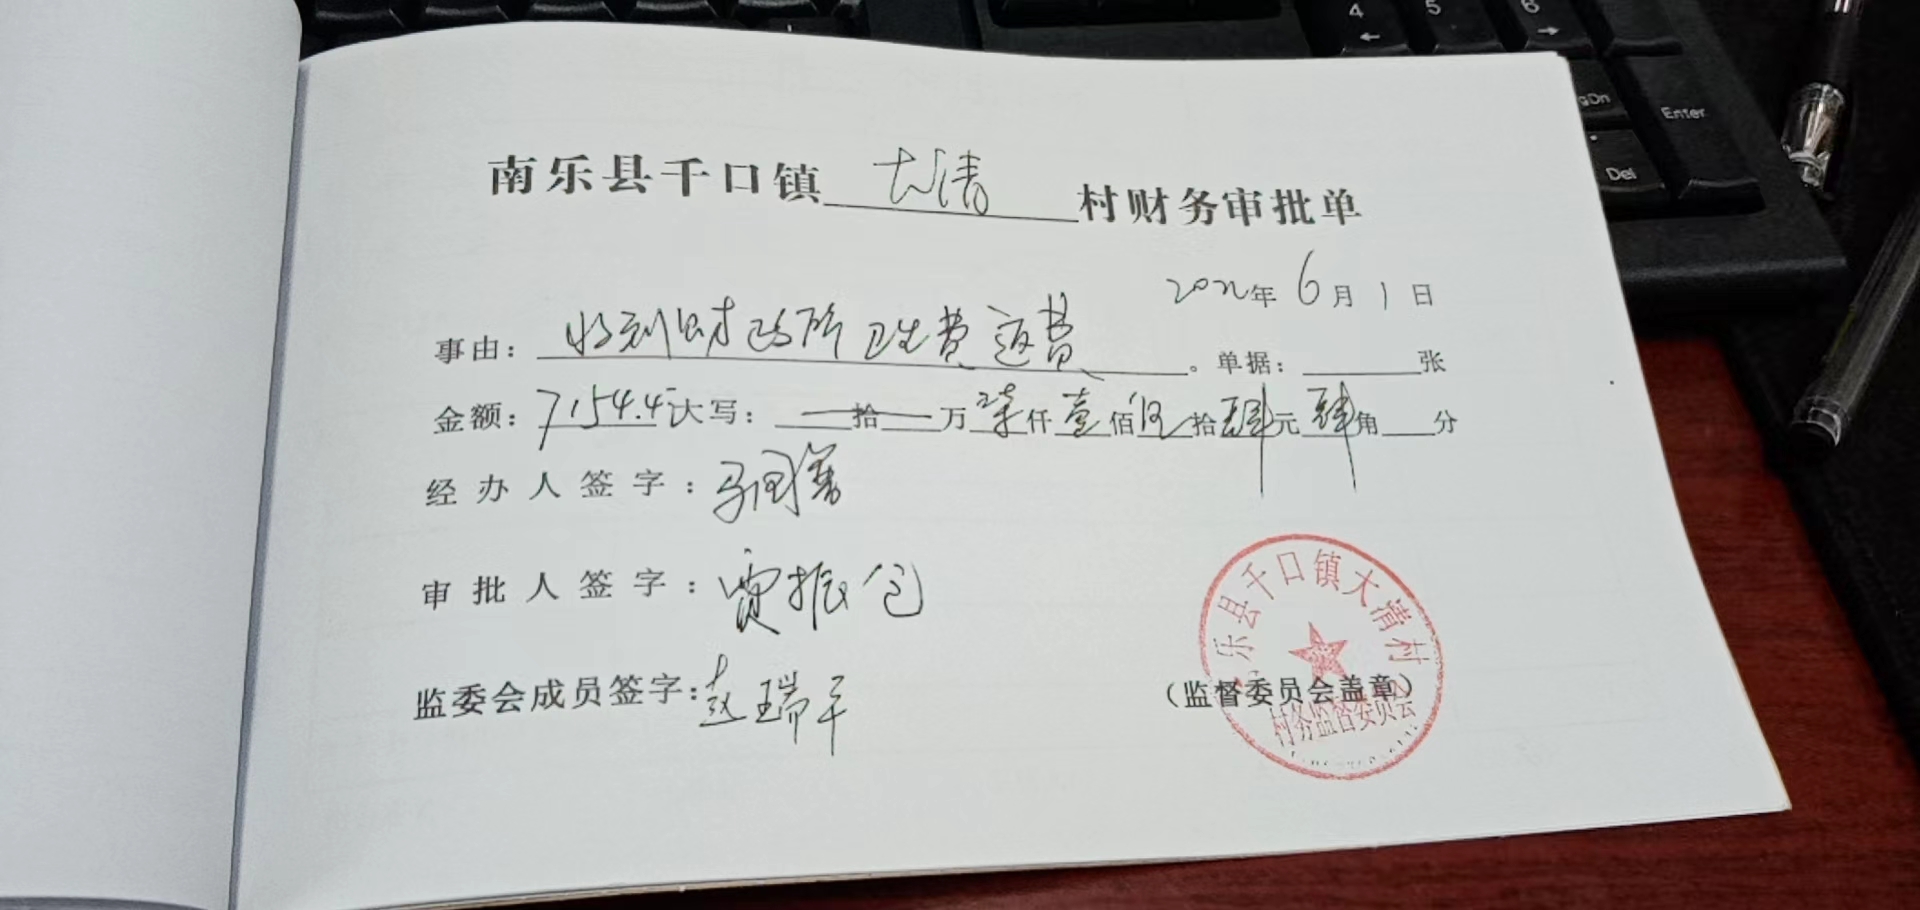 南乐县千口镇 大清 村财务审批单
2022年6月1日
事由：收到财政所卫生费返费。单据：张
金额：7154.4元大写：拾万柒仟壹佰伍拾肆元肆角分
经办人签字：马国
审批人签字：贾振仓
监委会成员签字：赵瑞平
（监督委员会盖章）
乐县千口镇大清村
村务监督委员会
4
5
6
gDn
Enter
Del